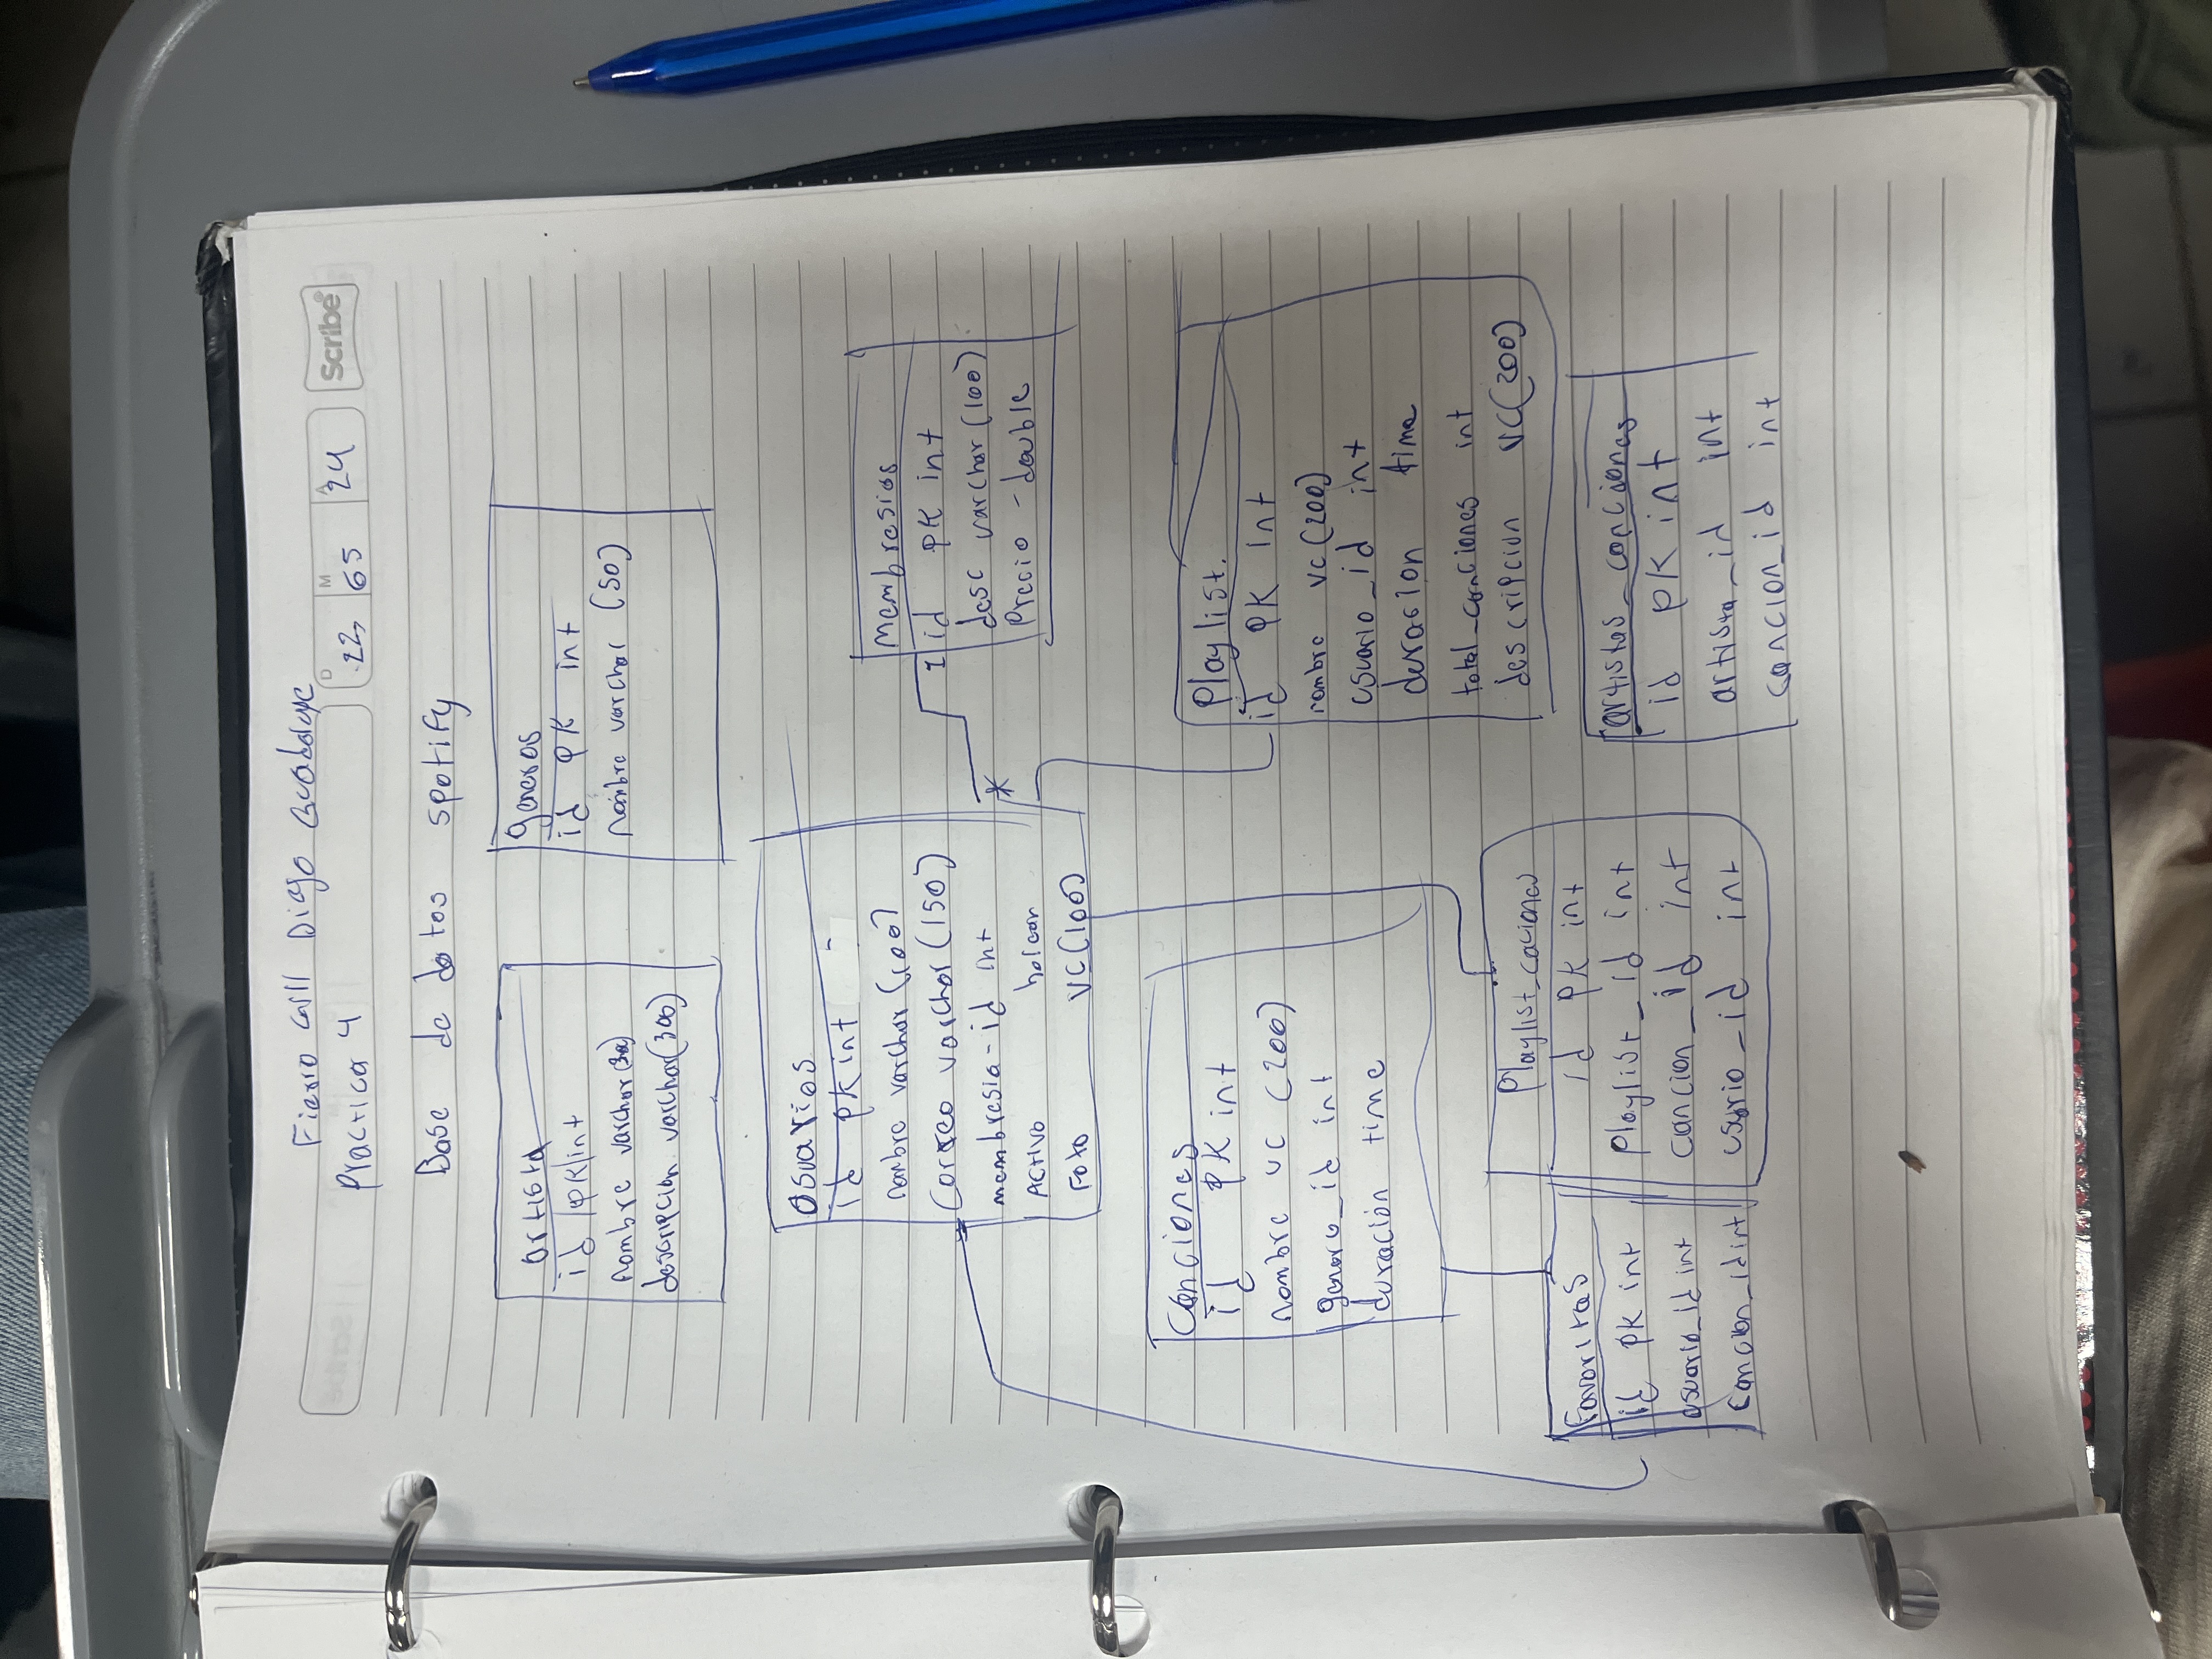 Fierro Diego Guadalupe
Practica 4
D 22 M 05 A 24
Scribe
Base de datos spotify
artista
id pk int
nombre varchar(300)
descripcion varchar(300)
generos
id PK int
nombre varchar (50)
Usuarios
id pk int
nombre varchar (100)
Correo varchar (150)
membresia-id int
Activo bolean
Foto VC(100)
*
1
Membresias
id pk int
desc varchar (100)
Precio - double
Canciones
id pk int
nombre vc (200)
genero_id int
duración time
Playlist.
id PK int
nombre vc (200)
usuario_id int
duracion time
total_canciones int
descripcion VC(200)
Favoritas
id pk int
usuario_id int
cancion_id int
Playlist_caciones
id pk int
playlist_id int
cancion_id int
usurio_id int
artistas_canciones
id pk int
artista_id int
cancion_id int